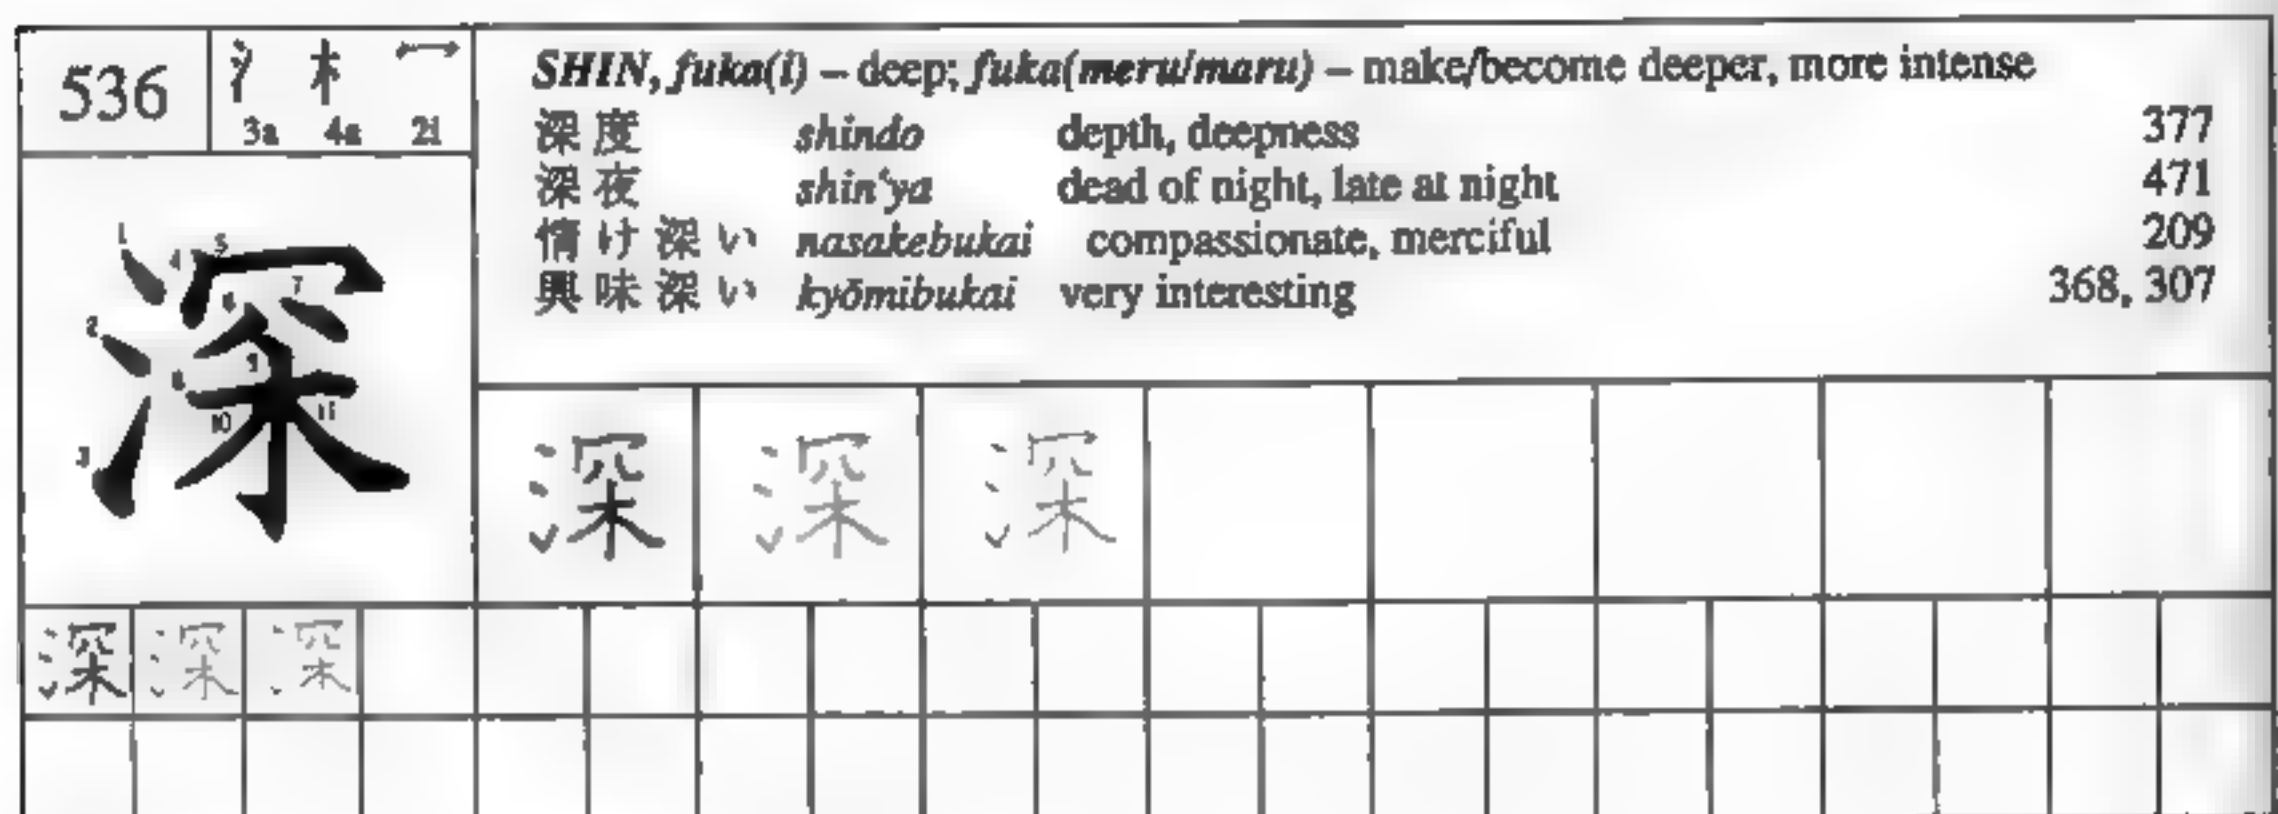 536
氵 木 冖
3a 4a 2i
SHIN, fuka(i) – deep; fuka(meru/maru) – make/become deeper, more intense
深度 shindo depth, deepness 377
深夜 shin‘ya dead of night, late at night 471
情け深い nasakebukai compassionate, merciful 209
興味深い kyōmibukai very interesting 368, 307
深
1 2 3 4 5 6 7 8 9 10 11
深 深 深
深 深 深